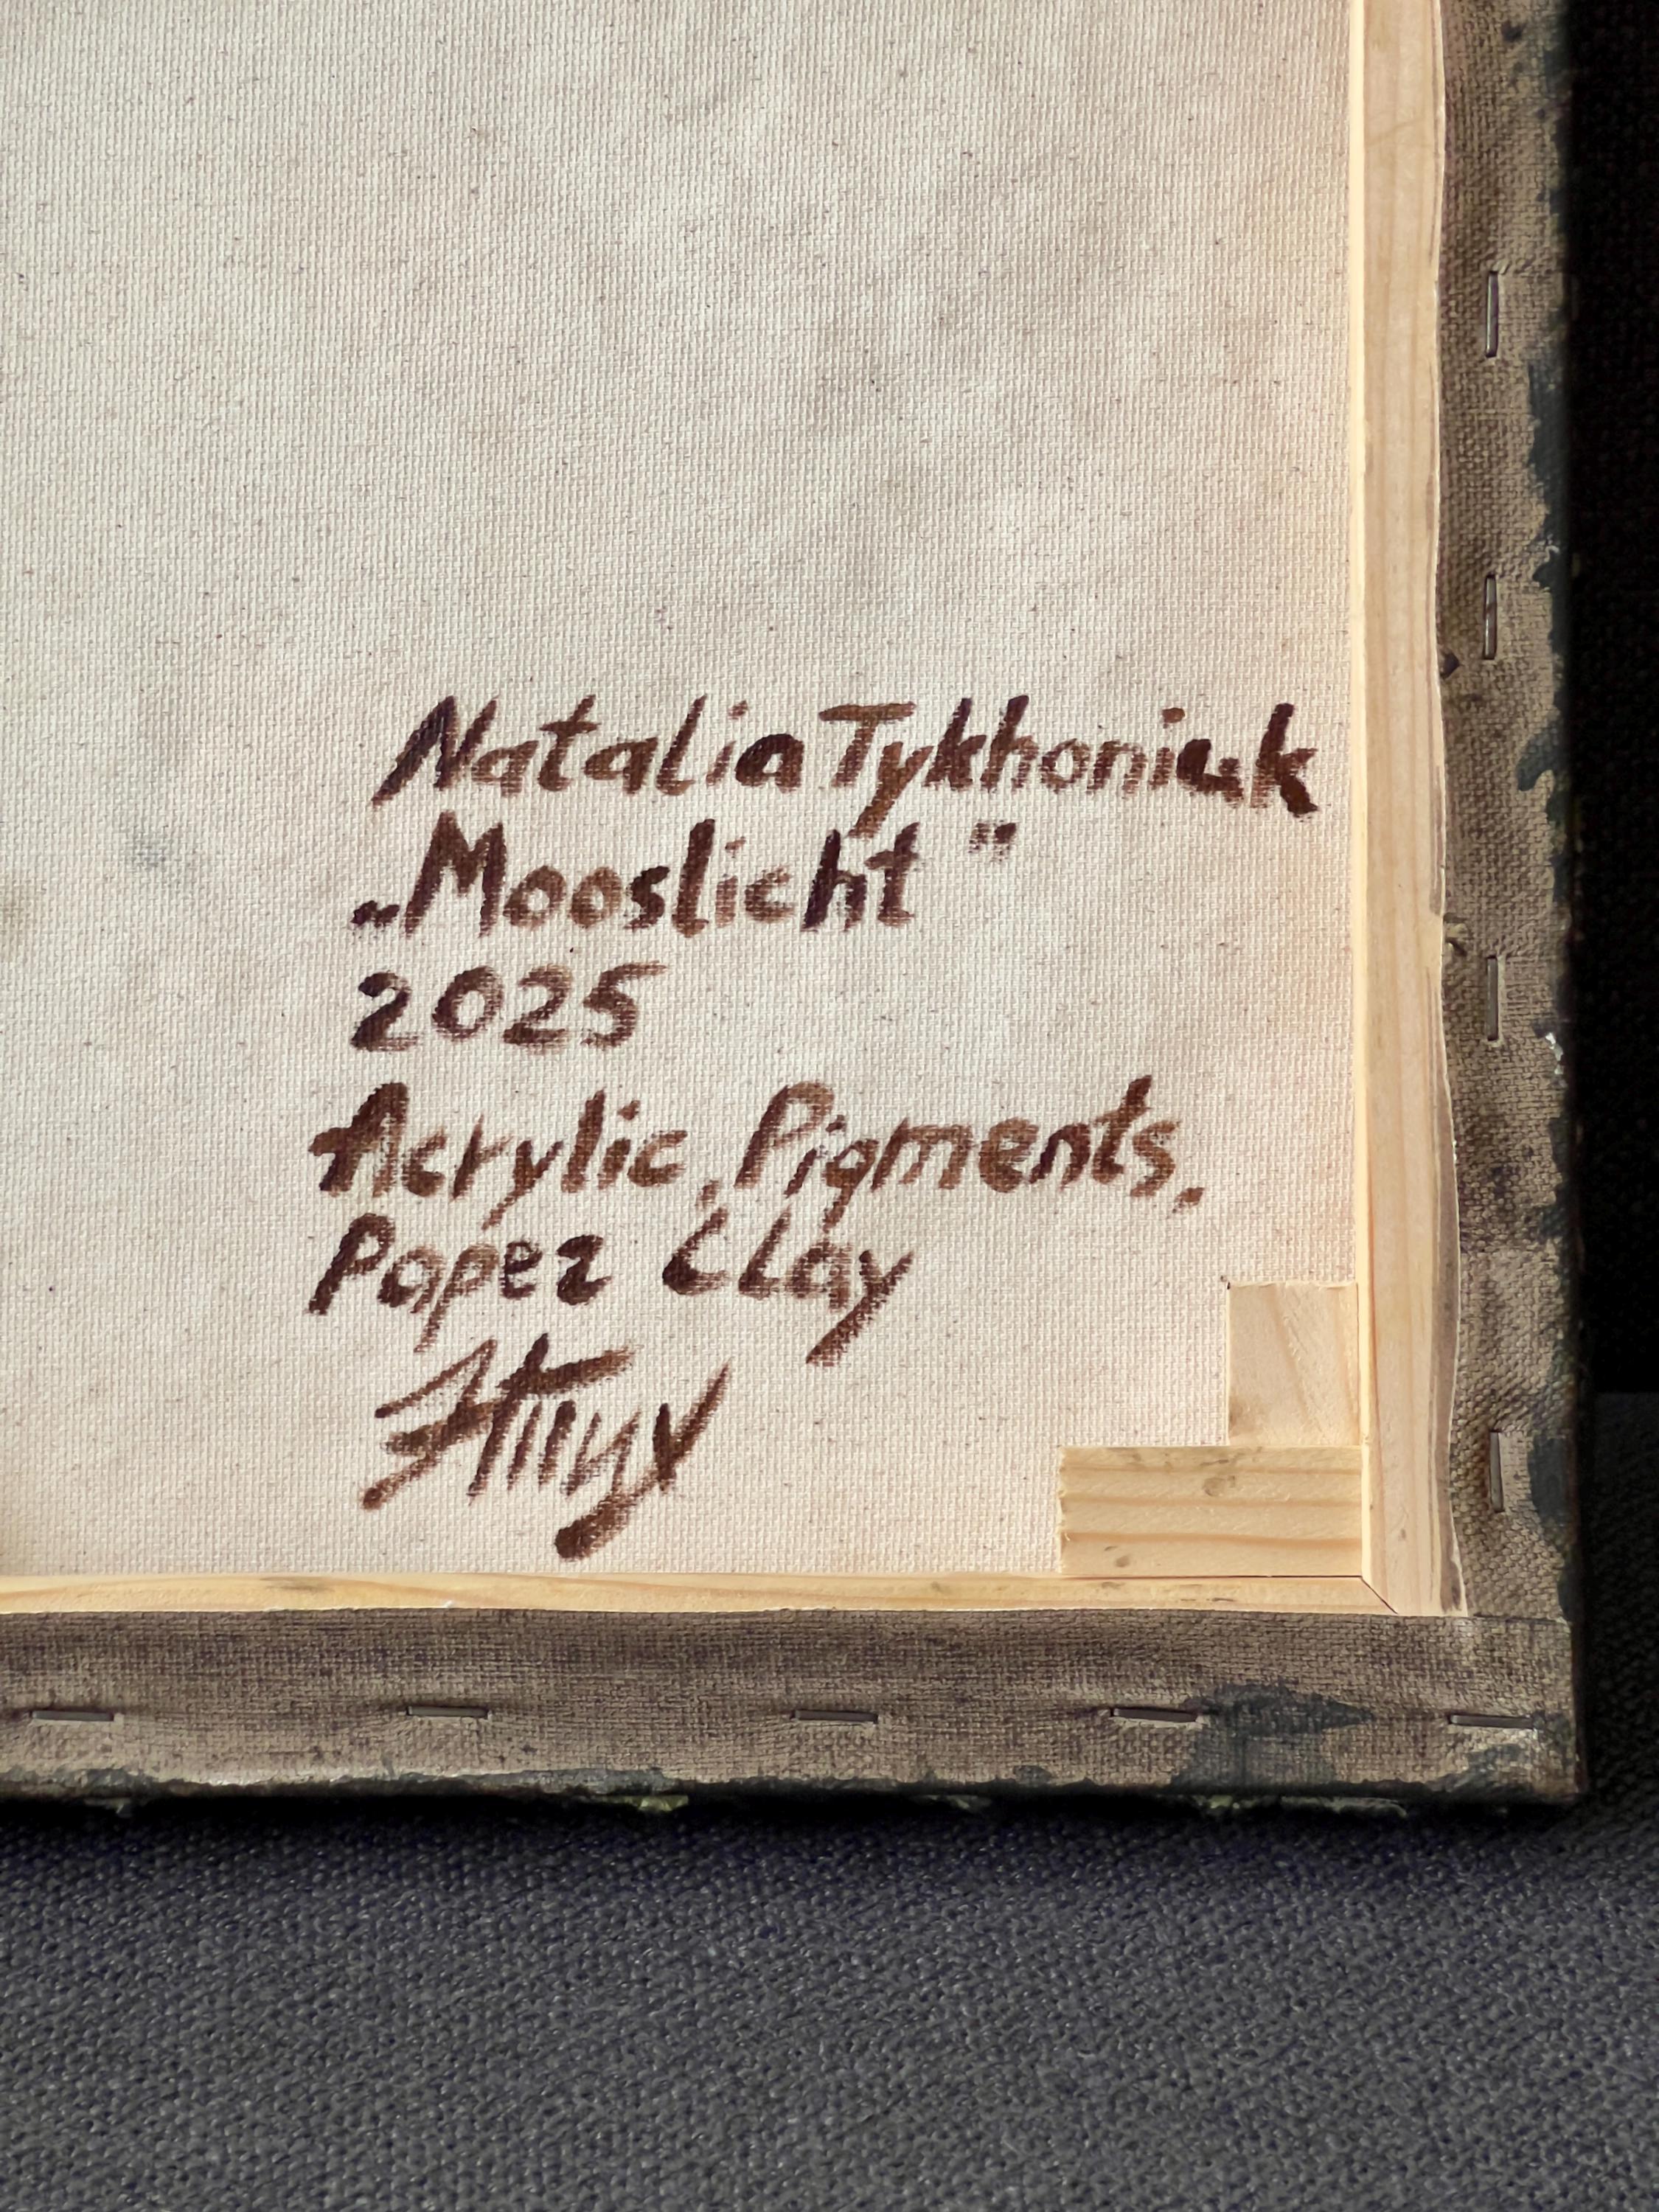 Natalia Tykhoniuk
„Mooslicht"
2025
Acrylic, Pigments,
Paper Clay